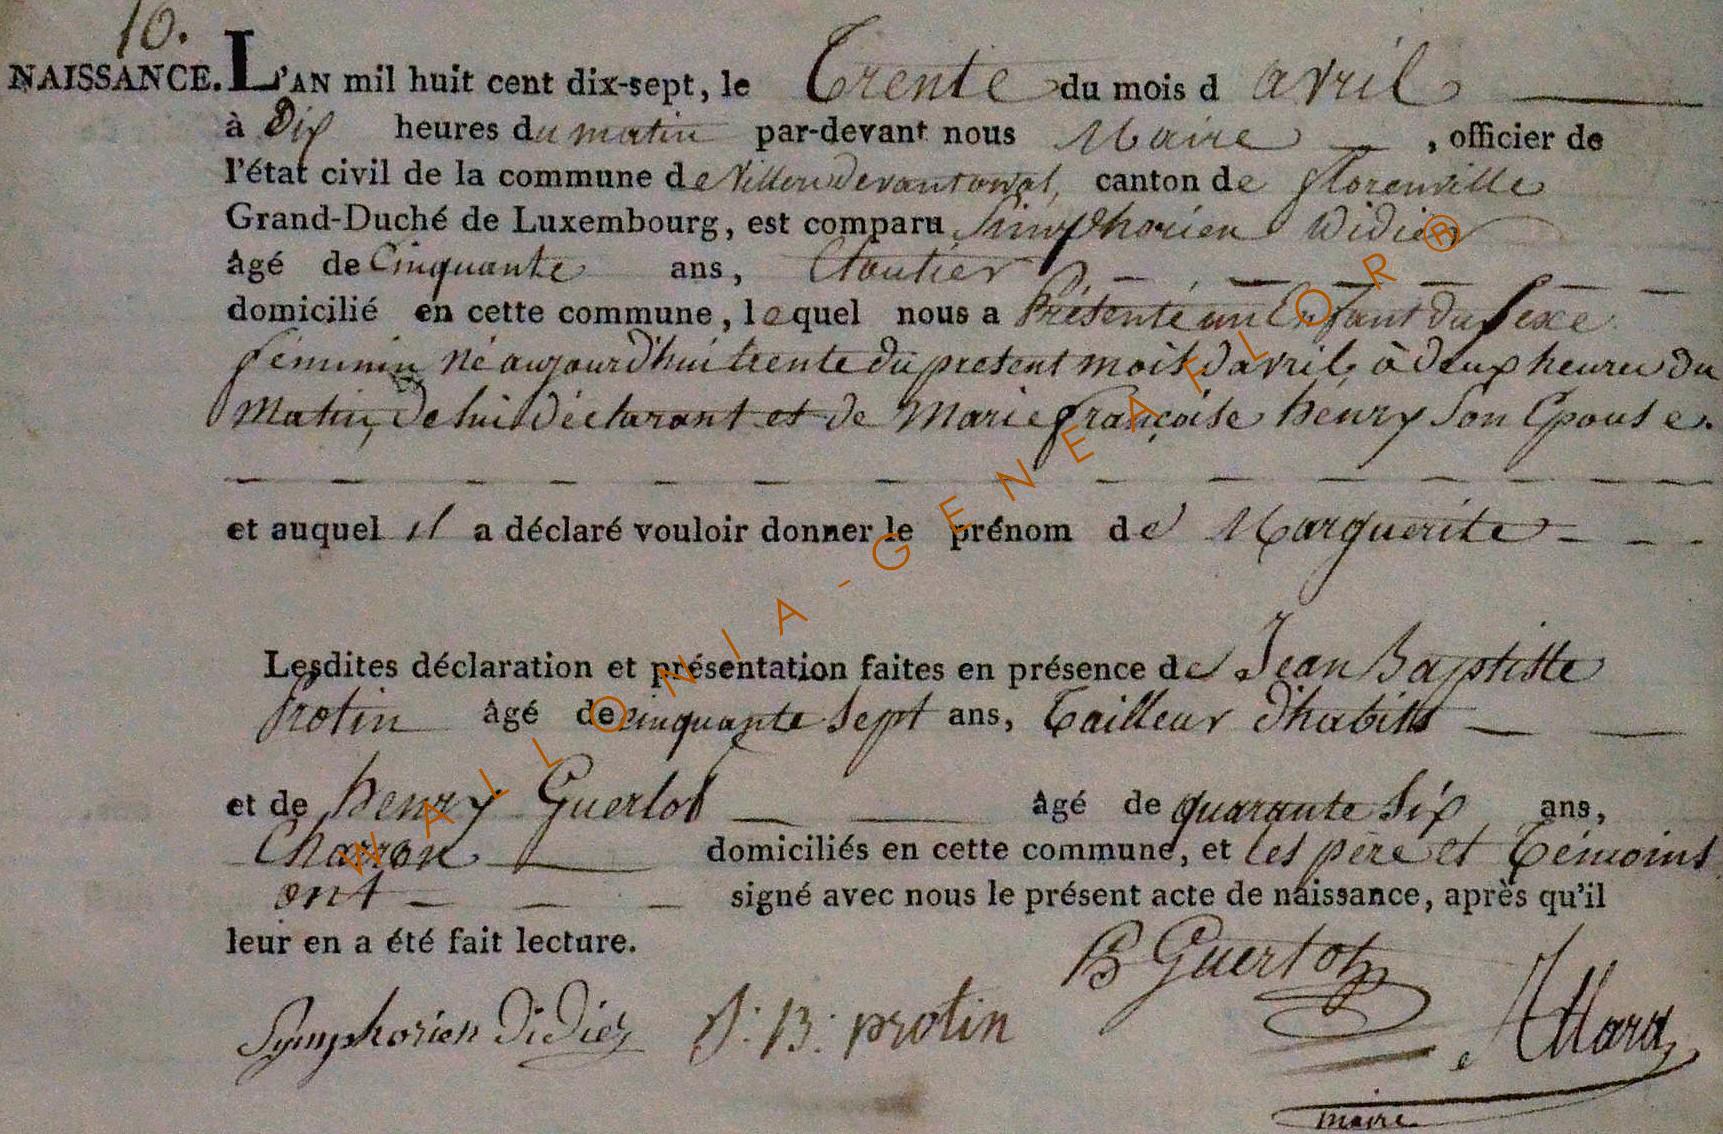 16.
NAISSANCE. L'AN mil huit cent dix-sept, le Trente du mois d avril
à Dix heures du matin par-devant nous Maire , officier de
l'état civil de la commune de Villers devant orval, canton de florenville
Grand-Duché de Luxembourg, est comparu Simphorien Didier
âgé de Cinquante ans, Cloutier
domicilié en cette commune, lequel nous a Présenté un Enfant du sexe
féminin né aujourd'hui trente du present mois d'avril, à deux heures du
Matin, de lui déclarant et de Marie françoise henry Son Epouse.
et auquel il a déclaré vouloir donner le prénom de Marguerite
Lesdites déclaration et présentation faites en présence de Jean Baptiste
Protin âgé de cinquante sept ans, Tailleur d'habits
et de henry Guerlot âgé de quarante six ans,
Charron domiciliés en cette commune, et les père et Témoins
ont signé avec nous le présent acte de naissance, après qu'il
leur en a été fait lecture.
Symphorien Didier J: B: protin Guerlot Allard
maire
WALLONIA-GENEAFLOR®